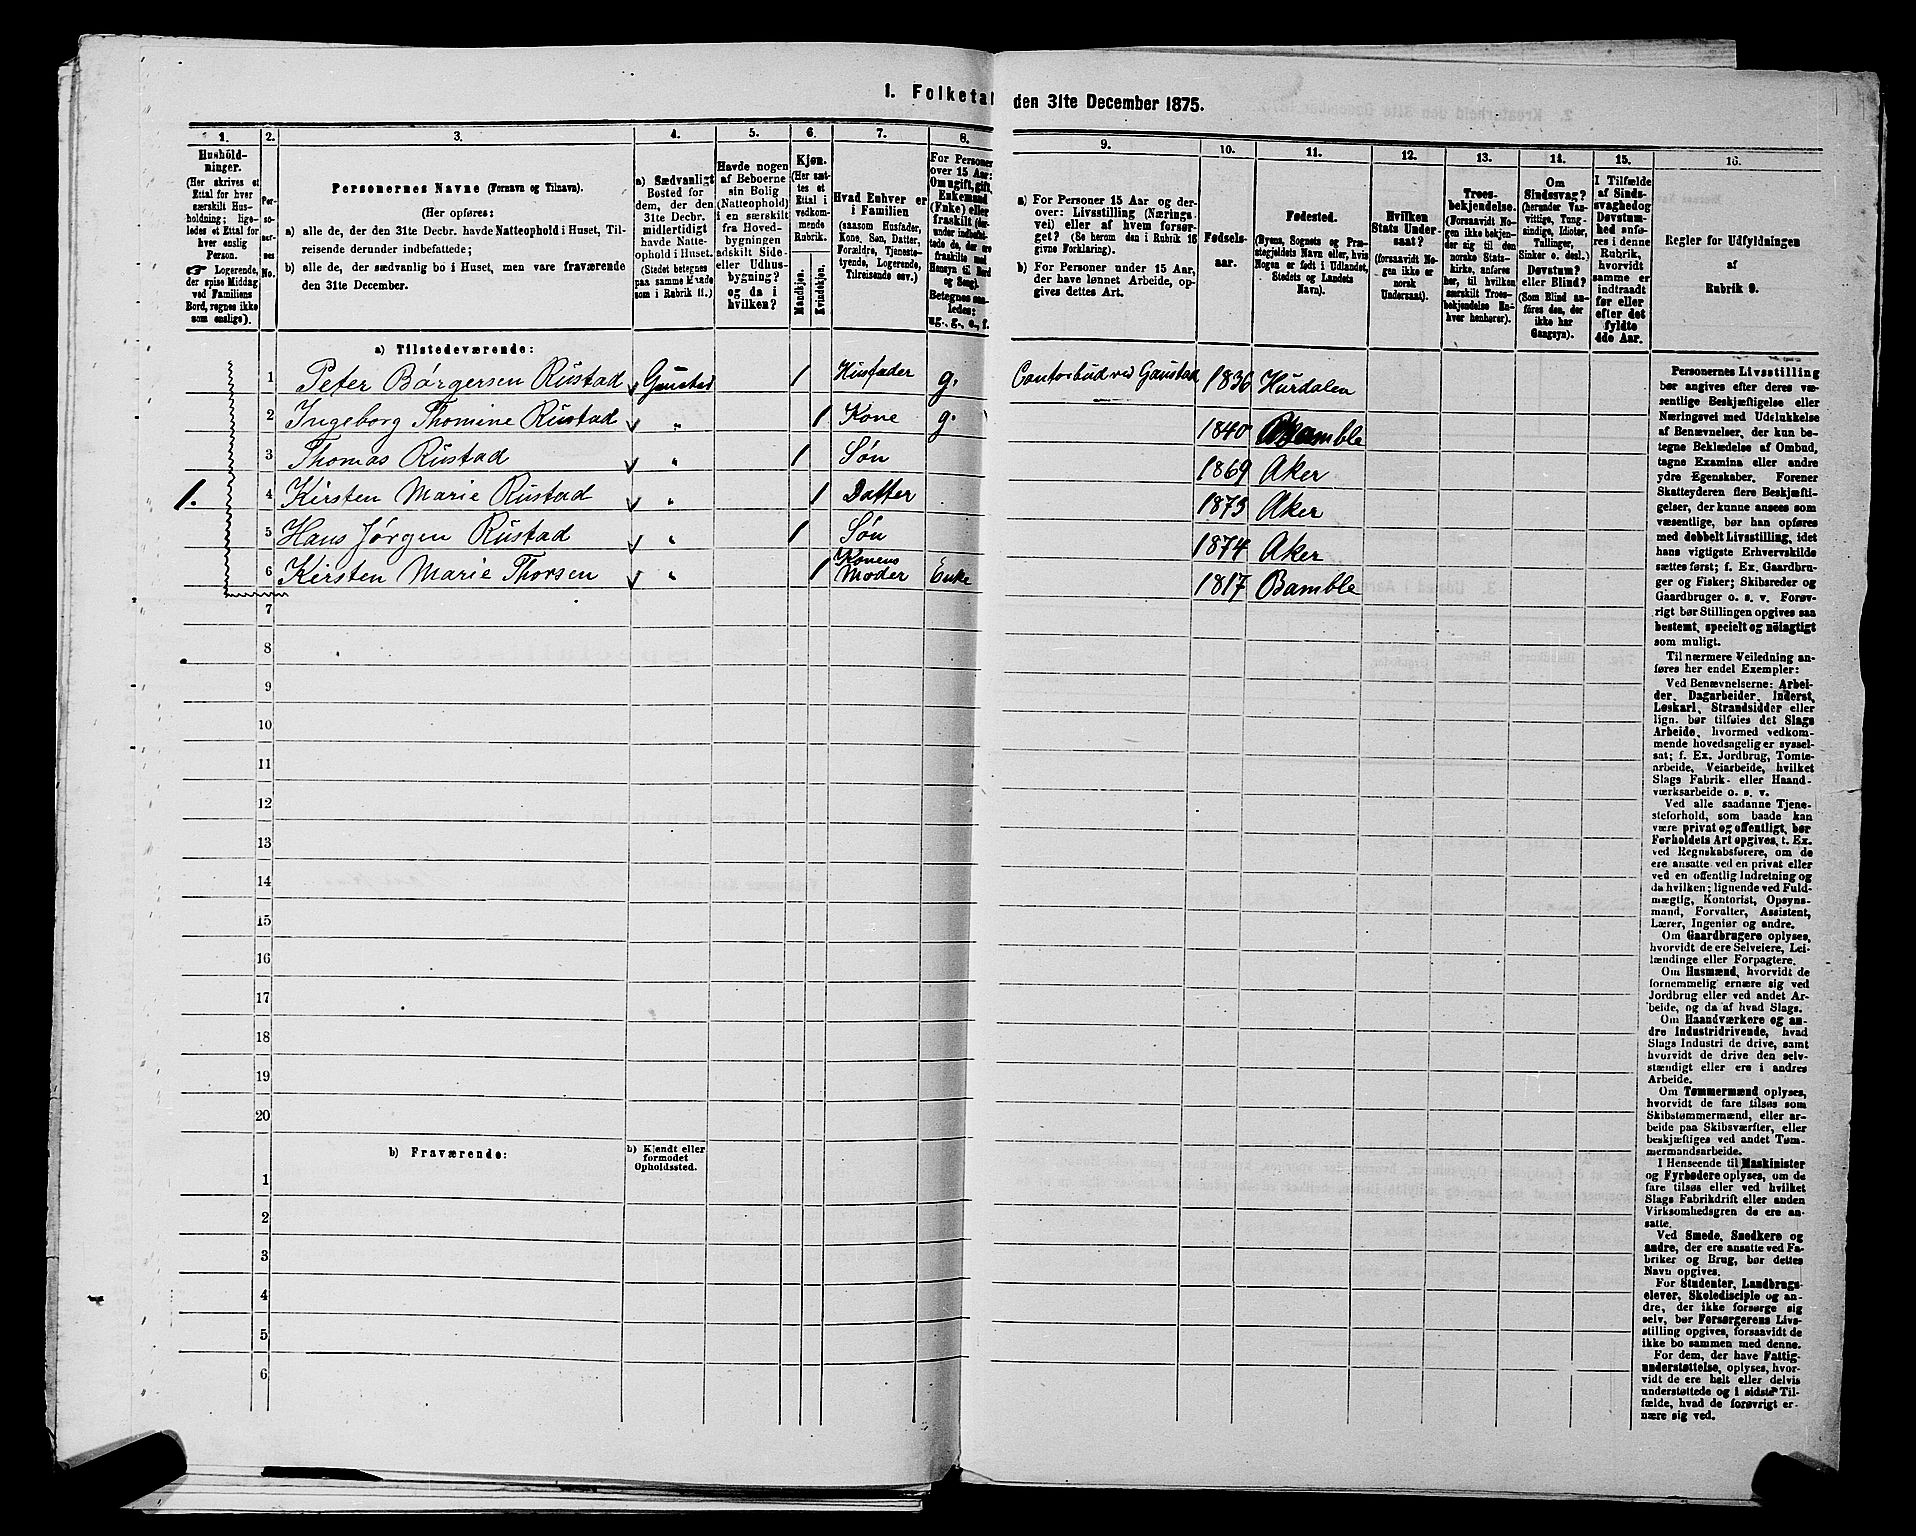 1. Folketal den 31te December 1875.
1. 2. 3. 4. 5. 6. 7. 8. 9. 10. 11. 12. 13. 14. 15. 16.
Hushold-
ninger.
(Her skrives et
Ettal for hver
særskilt Hus-
holdning; lige-
ledes et Ettal for
hver enslig
Person.
☞ Logerende,
der spise Middag
ved Familiens
Bord, regnes ikke
som enslige).
Per-
so-
ner-
nes
No.
Personernes Navne (Fornavn og Tilnavn).
(Her opføres:
a) alle de, der den 31te Decbr. havde Natteophold i Huset, Til-
reisende derunder indbefattede;
b) alle de, der sædvanlig bo i Huset, men vare fraværende
den 31te December.
a) Sædvanligt
Bosted for
dem, der den
31te Decbr.
midlertidigt
havde Natte-
ophold i Huset.
(Stedet betegnes
paa samme Maade
som i Rubrik 11.)
Havde nogen
af Beboerne
sin Bolig
(Natteophold)
i en særskilt
fra Hoved-
bygningen
adskilt Side-
eller Udhus-
bygning?
og da i
hvilken?
Kjøn.
(Her sæt-
tes et
Ettal i
vedkom-
mende
Rubrik.
Mandkjøn.
Kvindekjøn.
Hvad Enhver er
i Familien
(saasom Husfader,
Kone, Søn, Datter,
Forældre, Tjeneste-
tyende, Logerende,
Tilreisende osv.)
For Personer
over 15 Aar:
Om ugift, gift,
Enkemand
(Enke) eller
fraskilt (der-
under indbefat-
tede de, der ere
fraskilte med
Hensyn til Bord
og Seng).
Betegnes saa-
ledes:
ug., g., e., f.
a) For Personer 15 Aar og der-
over: Livsstilling (Nærings-
vei) eller af hvem forsør-
get? (Se herom den i Rubrik 16
givne Forklaring).
b) For Personer under 15 Aar,
der have lønnet Arbeide, op-
gives dettes Art.
Fødsels-
aar.
Fødested.
(Byens, Sognets og Præ-
stegjeldets Navn eller, hvis
Nogen er født i Udlandet,
Stedets og Landets
Navn).
Hvilken
Stats Under-
saat?
(forsaavidt No-
gen ikke er
norsk
Undersaat).
Troes-
bekjendelse.
(Forsaavidt No-
gen ikke bekjen-
der sig til den
norske Stats-
kirke, anføres
her, til hvilken
særskilt Troes-
bekjendelse En-
hver henhører).
Om
Sindssvag?
(herunder Van-
vittige, Tung-
sindige, Idioter,
Tullinger,
Sinker o. desl.)
Døvstum?
eller Blind?
(Som Blind an-
føres den, der
ikke har
Gangsyn).
I Tilfælde
af Sinds-
svaghed og
Døvstum-
hed anfø-
res i denne
Rubrik,
hvorvidt
samme er
indtraadt
før eller
efter det
fyldte
4de Aar.
Regler for Udfyldningen
af
Rubrik 9.
a) Tilstedeværende:
1 Peter Børgersen Rustad Gaustad 1 Husfader g. Contorbud ved Gaustad 1836 Hurdalen
2 Ingeborg Thomine Rustad " 1 Kone g. 1840 Bamble
3 Thomas Rustad " 1 Søn 1869 Aker
1. 4 Kirsten Marie Rustad " 1 Datter 1873 Aker
5 Hans Jørgen Rustad " 1 Søn 1874 Aker
6 Kirsten Marie Thorsen " 1 Konens Moder Enke 1817 Bamble
7
8
9
10
11
12
13
14
15
16
17
18
19
20
b) Fraværende:
b) Kjendt eller
formodet
Opholdssted.
1
2
3
4
5
6
Personernes Livsstilling
bør angives efter deres væ-
sentlige Beskjæftigelse eller
Næringsvei med Udelukkelse
af Benævnelser, der kun be-
tegne Beklædelse af Ombud,
tagne Examina eller andre
ydre Egenskaber. Forener
Skatteyderen flere Beskjæfti-
gelser, der kunne ansees som
væsentlige, bør han opføres
med dobbelt Livsstilling, idet
hans vigtigste Erhvervskilde
sættes først; f. Ex. Gaardbru-
ger og Fisker; Skibsreder og
Gaardbruger o. s. v. Forøv-
rigt bør Stillingen opgives saa
bestemt, specielt og nöiagtigt
som muligt.
Til nærmere Veiledning an-
føres her endel Exempler:
Ved Benævnelserne: Arbei-
der, Dagarbeider, Inderst,
Løskarl, Strandsidder eller
lign. bør tilføies det Slags
Arbeide, hvormed vedkom-
mende hovedsagelig er syssel-
sat; f. Ex. Jordbrug, Tomte-
arbeide, Veiarbeide, hvilket
Slags Fabrik- eller Haand-
værksarbeide o. s. v.
Ved alle saadanne Tjene-
steforhold, som baade kan
være privat og offentligt, bør
Forholdets Art opgives, t. Ex.
ved Regnskabsførere, om de
ere ansatte ved en privat eller
ved en offentlig Indretning og
da hvilken; lignende ved Fuld-
mægtig, Kontorist, Opsyns-
mand, Forvalter, Assistent,
Lærer, Ingeniør og andre.
Om Gaardbrugere oplyses,
hvorvidt de ere Selveiere, Lei-
lændinge eller Forpagtere.
Om Husmænd, hvorvidt de
fornemmelig ernære sig ved
Jordbrug eller ved andet Ar-
beide, og da af hvad Slags.
Om Haandværkere og an-
dre Industridrivende, hvad
Slags Industri de drive, samt
hvorvidt de drive den selv-
stændigt eller ere i andres
Arbeide.
Om Tømmermænd oplyses,
hvorvidt de fare tilsøs som
Skibstømmermænd, eller ar-
beide paa Skibsværfter, eller
beskjæftiges ved andet Tøm-
mermandsarbeide.
I Henseende til Maskinister
og Fyrbødere oplyses, om de
fare tilsøs eller ved hvilket
Slags Fabrikdrift eller anden
Virksomhedsgren de ere an-
satte.
Ved Smede, Snedkere og
andre, der ere ansatte ved Fa-
briker og Brug, bør dettes
Navn opgives.
For Studenter, Landbrugs-
elever, Skoledisciple og an-
dre, der ikke forsørge sig
selv, bør Forsørgerens Livs-
stilling opgives, forsaavidt de
ikke bo sammen med denne.
For dem, der have Fattig-
understøttelse, oplyses, hvor-
vidt de ere helt eller delvis
understøttede og i sidste Til-
fælde, hvad de forøvrigt er-
nære sig ved.